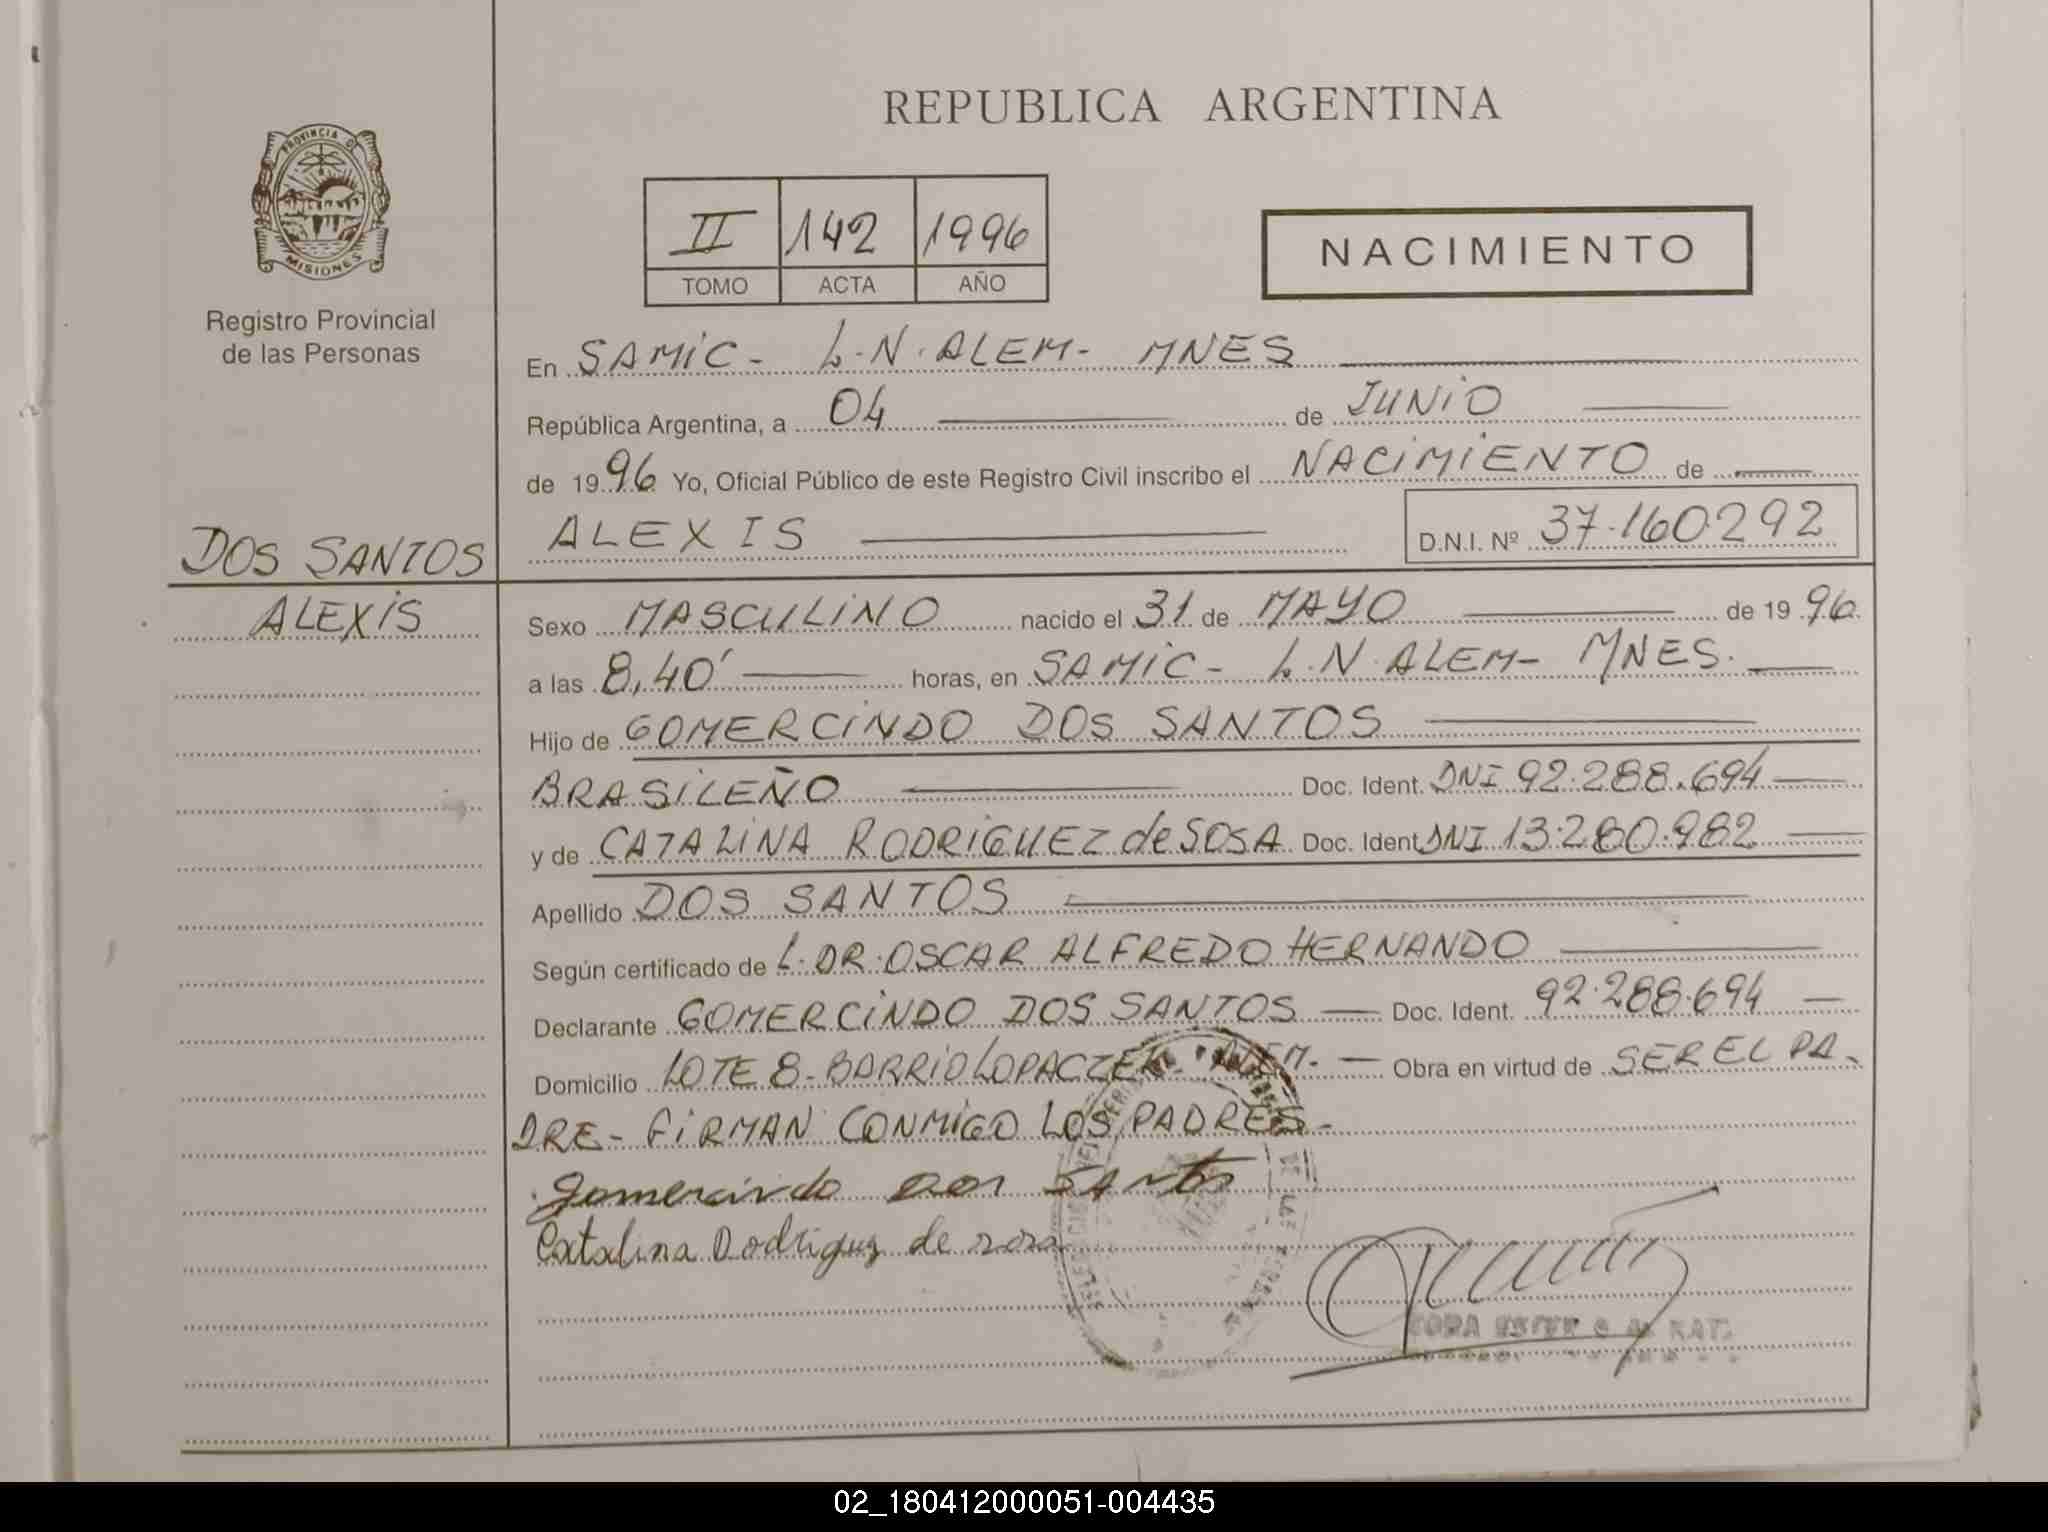 REPUBLICA ARGENTINA
PROVINCIA DE
MISIONES
Registro Provincial
de las Personas
II 142 1996
TOMO ACTA AÑO
NACIMIENTO
En SAMIC - L.N. ALEM - MNES
República Argentina, a 04 de JUNIO
de 1996 Yo, Oficial Público de este Registro Civil inscribo el NACIMIENTO de
ALEXIS D.N.I. Nº 37.160292
DOS SANTOS
ALEXIS
Sexo MASCULINO nacido el 31 de MAYO de 1996
a las 8,40' horas, en SAMIC - L.N. ALEM - MNES.
Hijo de GOMERCINDO DOS SANTOS
BRASILEÑO Doc. Ident. DNI 92.288.694
y de CATALINA RODRIGUEZ de SOSA Doc. Ident. DNI 13.280.982
Apellido DOS SANTOS
Según certificado de L. DR. OSCAR ALFREDO HERNANDO
Declarante GOMERCINDO DOS SANTOS Doc. Ident. 92.288.694
Domicilio LOTE 8 - BARRIO LOPACZEK - ALEM. - Obra en virtud de SER EL PA-
DRE - FIRMAN CONMIGO LOS PADRES -
Gomercindo Dos SAntos
Catalina Rodriguez de sosa
02_180412000051-004435